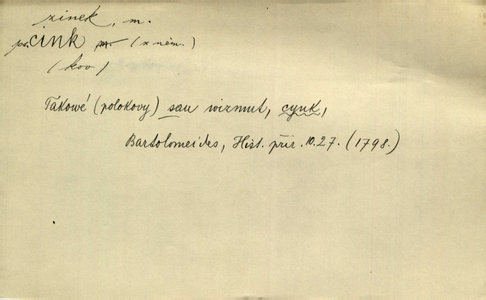 zinek, m.
ps. cink m. (z něm.)
(kov)
Takowé (polokovy) sau wizmut, cynk,
Bartolomeides, Hist. přir. 10.27. (1798.)